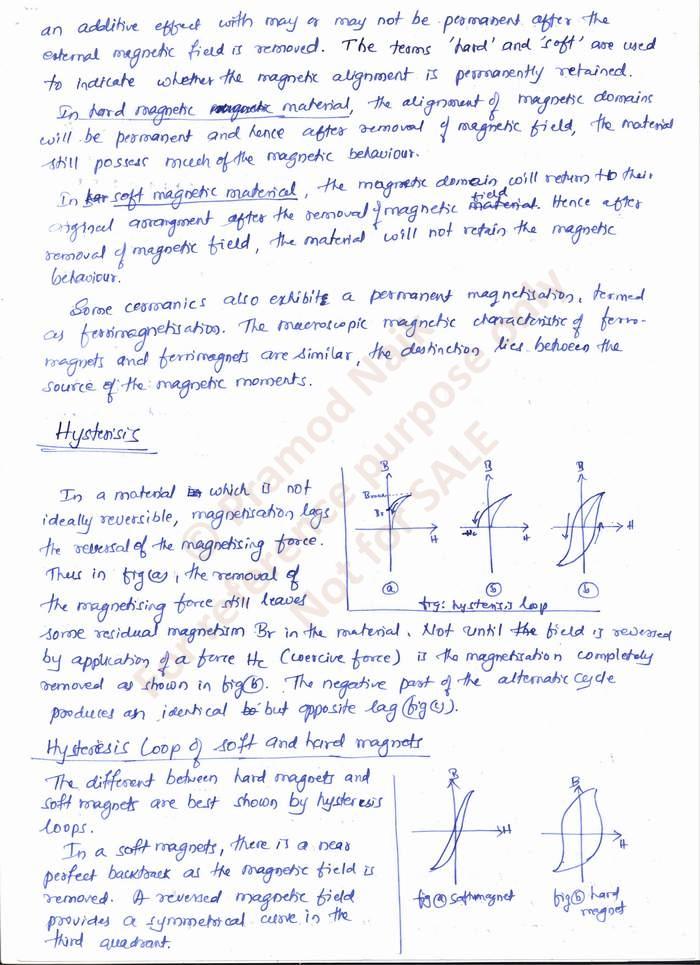 an additive effect with may or may not be permanent after the
external magnetic field is removed. The terms 'hard' and 'soft' are used
to indicate whether the magnetic alignment is permanently retained.
In hard magnetic magnetic material, the alignment of magnetic domains
will be permanent and hence after removal of magnetic field, the material
still possess much of the magnetic behaviour.
In har soft magnetic material, the magnetic domain will return to their
field
original arrangment after the removal of magnetic material. Hence after
removal of magnetic field, the material will not retain the magnetic
behaviour.
Some cermanics also exhibits a permanent magnetisation, termed
as ferrimagnetisation. The macroscopic magnetic characteristic of ferro-
magnets and ferrimagnets are similar, the destinction lies between the
source of the magnetic moments.
Hysterisis
In a material which is not
ideally reversible, magnetisation lags
the reversal of the magnetising force.
Thus in fig(a), the removal of
the magnetising force still leaves
some residual magnetism Br in the material. Not until the field is reversed
by application of a force Hc (coercive force) is the magnetisation completely
removed as shown in fig(b). The negative part of the alternatic cycle
produces an identical but opposite lag (fig(c)).
B
Bmax
Br
H
(a)
B
-Hc
H
(b)
B
H
(b)
fig: hystensis loop
Hysteresis Loop of soft and hard magnets
The different between hard magnets and
soft magnets are best shown by hysteresis
loops.
In a soft magnets, there is a near
perfect backtrack as the magnetic field is
removed. A reversed magnetic field
provides a symmetrical curve in the
third quadrant.
B
H
fig (a) soft magnet
B
H
fig (b) hard
magnet
© Pramod Naik
For reference purpose only
Not for SALE